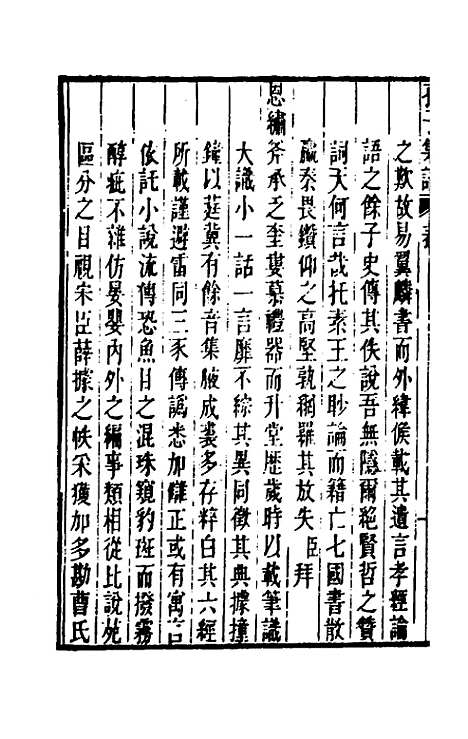 孔子集語
之歎故易翼麟書而外緯候載其遺言孝經論
語之餘子史傳其佚說吾無隱爾絕賢哲之贊
詞天何言哉托素王之眇論而籍亡七國書散
嬴秦畏鑽仰之高堅孰網羅其放失臣拜
恩繡斧承乏奎婁慕禮器而升堂歷歲時以載筆識
大識小一話一言靡不綜其異同徵其典據撞
鐘以莛冀有餘音集腋成裘多存粹白其六經
所載謹避雷同三豕傳譌悉加讎正或有寓言
依託小說流傳恐魚目之混珠窺豹斑而撥霧
醇疵不雜仿晏嬰內外之編事類相從比說苑
區分之目視宋臣薛據之帙采獲加多勘曹氏